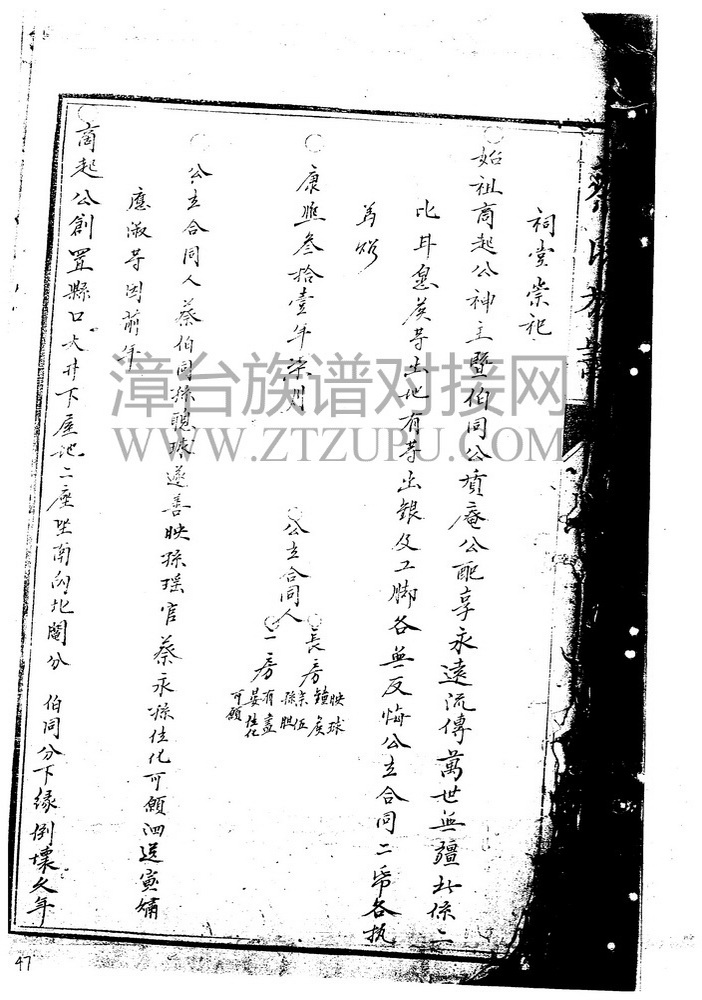 蔡氏族譜
祠堂崇祀
始祖商起公神主暨伯同公墳庵公配享永遠流傳萬世無疆此係二
比甘愿 等土地有等出銀及工脚各無反悔公立合同二帋各执
為炤
康熙叁拾壹年柒月
公立合同人
長房
映球
一房
有盖
佳化
可願
公立合同人蔡伯同孫聰球遂善映孫瑶官蔡永孫佳化可願泗送寅
應淑等因前年
商起公創置縣口大井下屋地二座坐南向北鬮分 伯同分下緣倒壞久年
漳台族谱对接网
WWW.ZTZUPU.COM
47